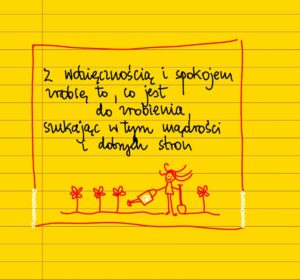 z wdzięcznością i spokojem
zrobię to, co jest
do zrobienia,
szukając w tym mądrości
i dobrych stron